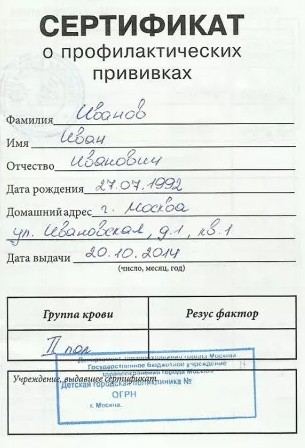 СЕРТИФИКАТ
о профилактических
прививках
Фамилия Иванов
Имя Иван
Отчество Иванович
Дата рождения 27.07.1992
Домашний адрес г. Москва
ул. Ивановская, д.1, кв.1
Дата выдачи 20.10.2014
(число, месяц, год)
Группа крови Резус фактор
II пол
Департамент здравоохранения города Москвы
Государственное бюджетное учреждение
здравоохранения города Москвы
Учреждение, выдавшее сертификат
Детская городская поликлиника №
ОГРН
г. Москва